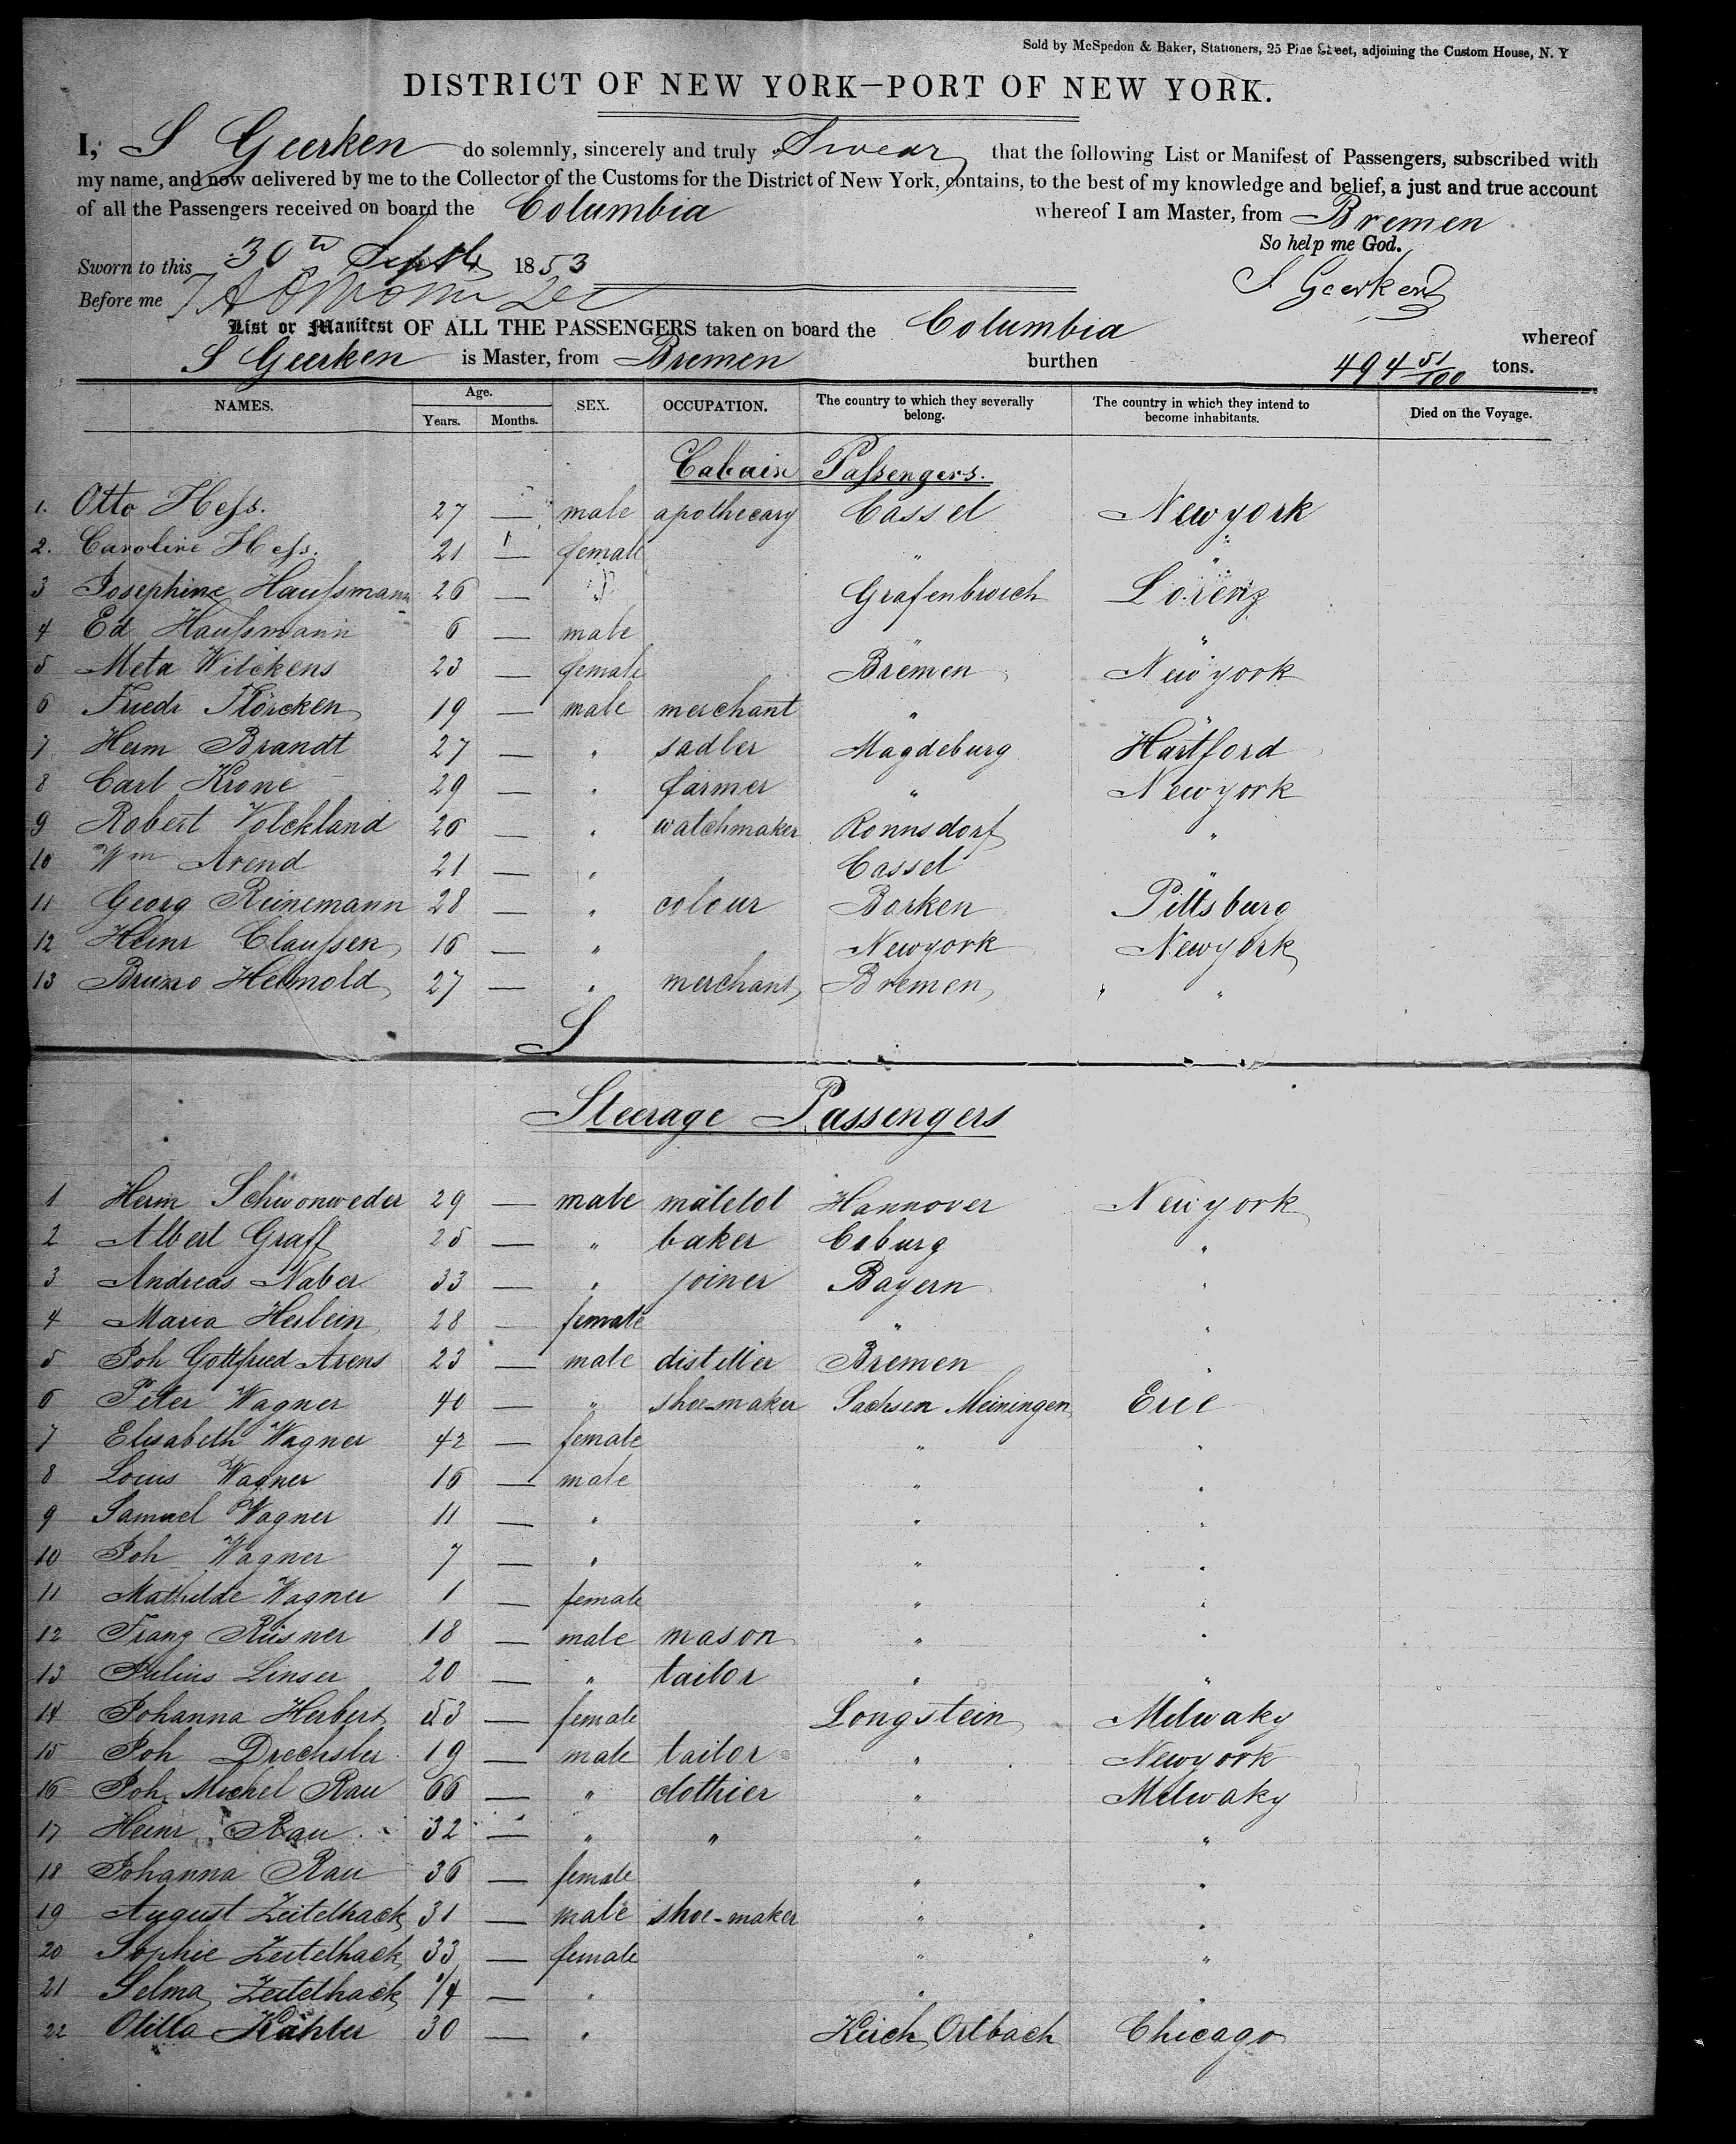 Sold by McSpedon & Baker, Stationers, 25 Pine Street, adjoining the Custom House, N. Y
DISTRICT OF NEW YORK—PORT OF NEW YORK.
I, S Geerken do solemnly, sincerely and truly Swear that the following List or Manifest of Passengers, subscribed with
my name, and now delivered by me to the Collector of the Customs for the District of New York, contains, to the best of my knowledge and belief, a just and true account
of all the Passengers received on board the Columbia whereof I am Master, from Bremen
So help me God.
Sworn to this 30th Septb 1853
S Geerken
Before me
List or Manifest OF ALL THE PASSENGERS taken on board the Columbia whereof
S Geerken is Master, from Bremen burthen 494 51/100 tons.
NAMES. Age. Years. Months. SEX. OCCUPATION. The country to which they severally belong. The country in which they intend to become inhabitants. Died on the Voyage.
Cabain Passengers.
1. Otto Hess. 27 — male apothecary Cassel Newyork
2. Caroline Hess. 21 — female " "
3 Josephine Haussmann 26 — " Grafenbroich Lorenz
4 Ed Haussmann 6 — male " "
5 Meta Wilckens 23 — female Bremen Newyork
6 Friedr Flörcken 19 — male merchant " "
7 Herm Brandt 27 — " sadler Magdeburg Hartford
8 Carl Krone 29 — " farmer " Newyork
9 Robert Volckland 26 — " watchmaker Ronnsdorf "
10 Wm Arend 21 — " Cassel "
11 Georg Reinemann 28 — " colour Borken Pittsburg
12 Heinr Claussen 16 — " Newyork Newyork
13 Bruno Helmold 27 — " merchant Bremen "
Steerage Passengers
1 Herm Schwonweder 29 — male matelot Hannover Newyork
2 Albert Graff 25 — " baker Coburg "
3 Andreas Naber 33 — " joiner Bayern "
4 Maria Herbein 28 — female " "
5 Joh Gottfried Arens 23 — male distiller Bremen "
6 Peter Wagner 40 — " shoe-maker Sachsen Meiningen Erie
7 Elisabeth Wagner 42 — female " "
8 Louis Wagner 16 — male " "
9 Samuel Wagner 11 — " " "
10 Joh Wagner 7 — " " "
11 Mathilde Wagner 1 — female " "
12 Franz Rüsner 18 — male mason " "
13 Julius Linser 20 — " tailor " "
14 Johanna Herbert 53 — female Longstein Milwaky
15 Joh Drechsler 19 — male tailor " Newyork
16 Joh. Michel Rau 66 — " clothier " Milwaky
17 Heinr Rau 32 — " " " "
18 Johanna Rau 36 — female " "
19 August Zeitelhack 31 — male shoe-maker " "
20 Sophie Zeitelhack 33 — female " "
21 Selma Zeitelhack 1/4 — " " "
22 Otilla Kähler 30 — " Kirch Ortbach Chicago